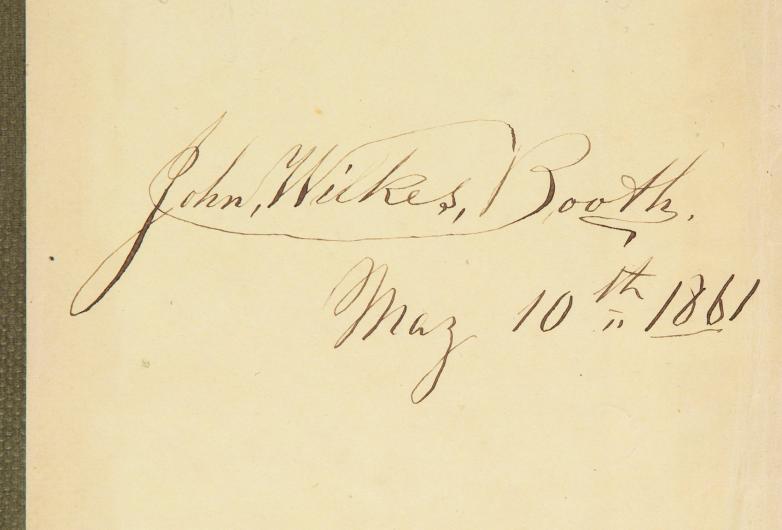 John, Wilkes, Booth.
May 10th 1861